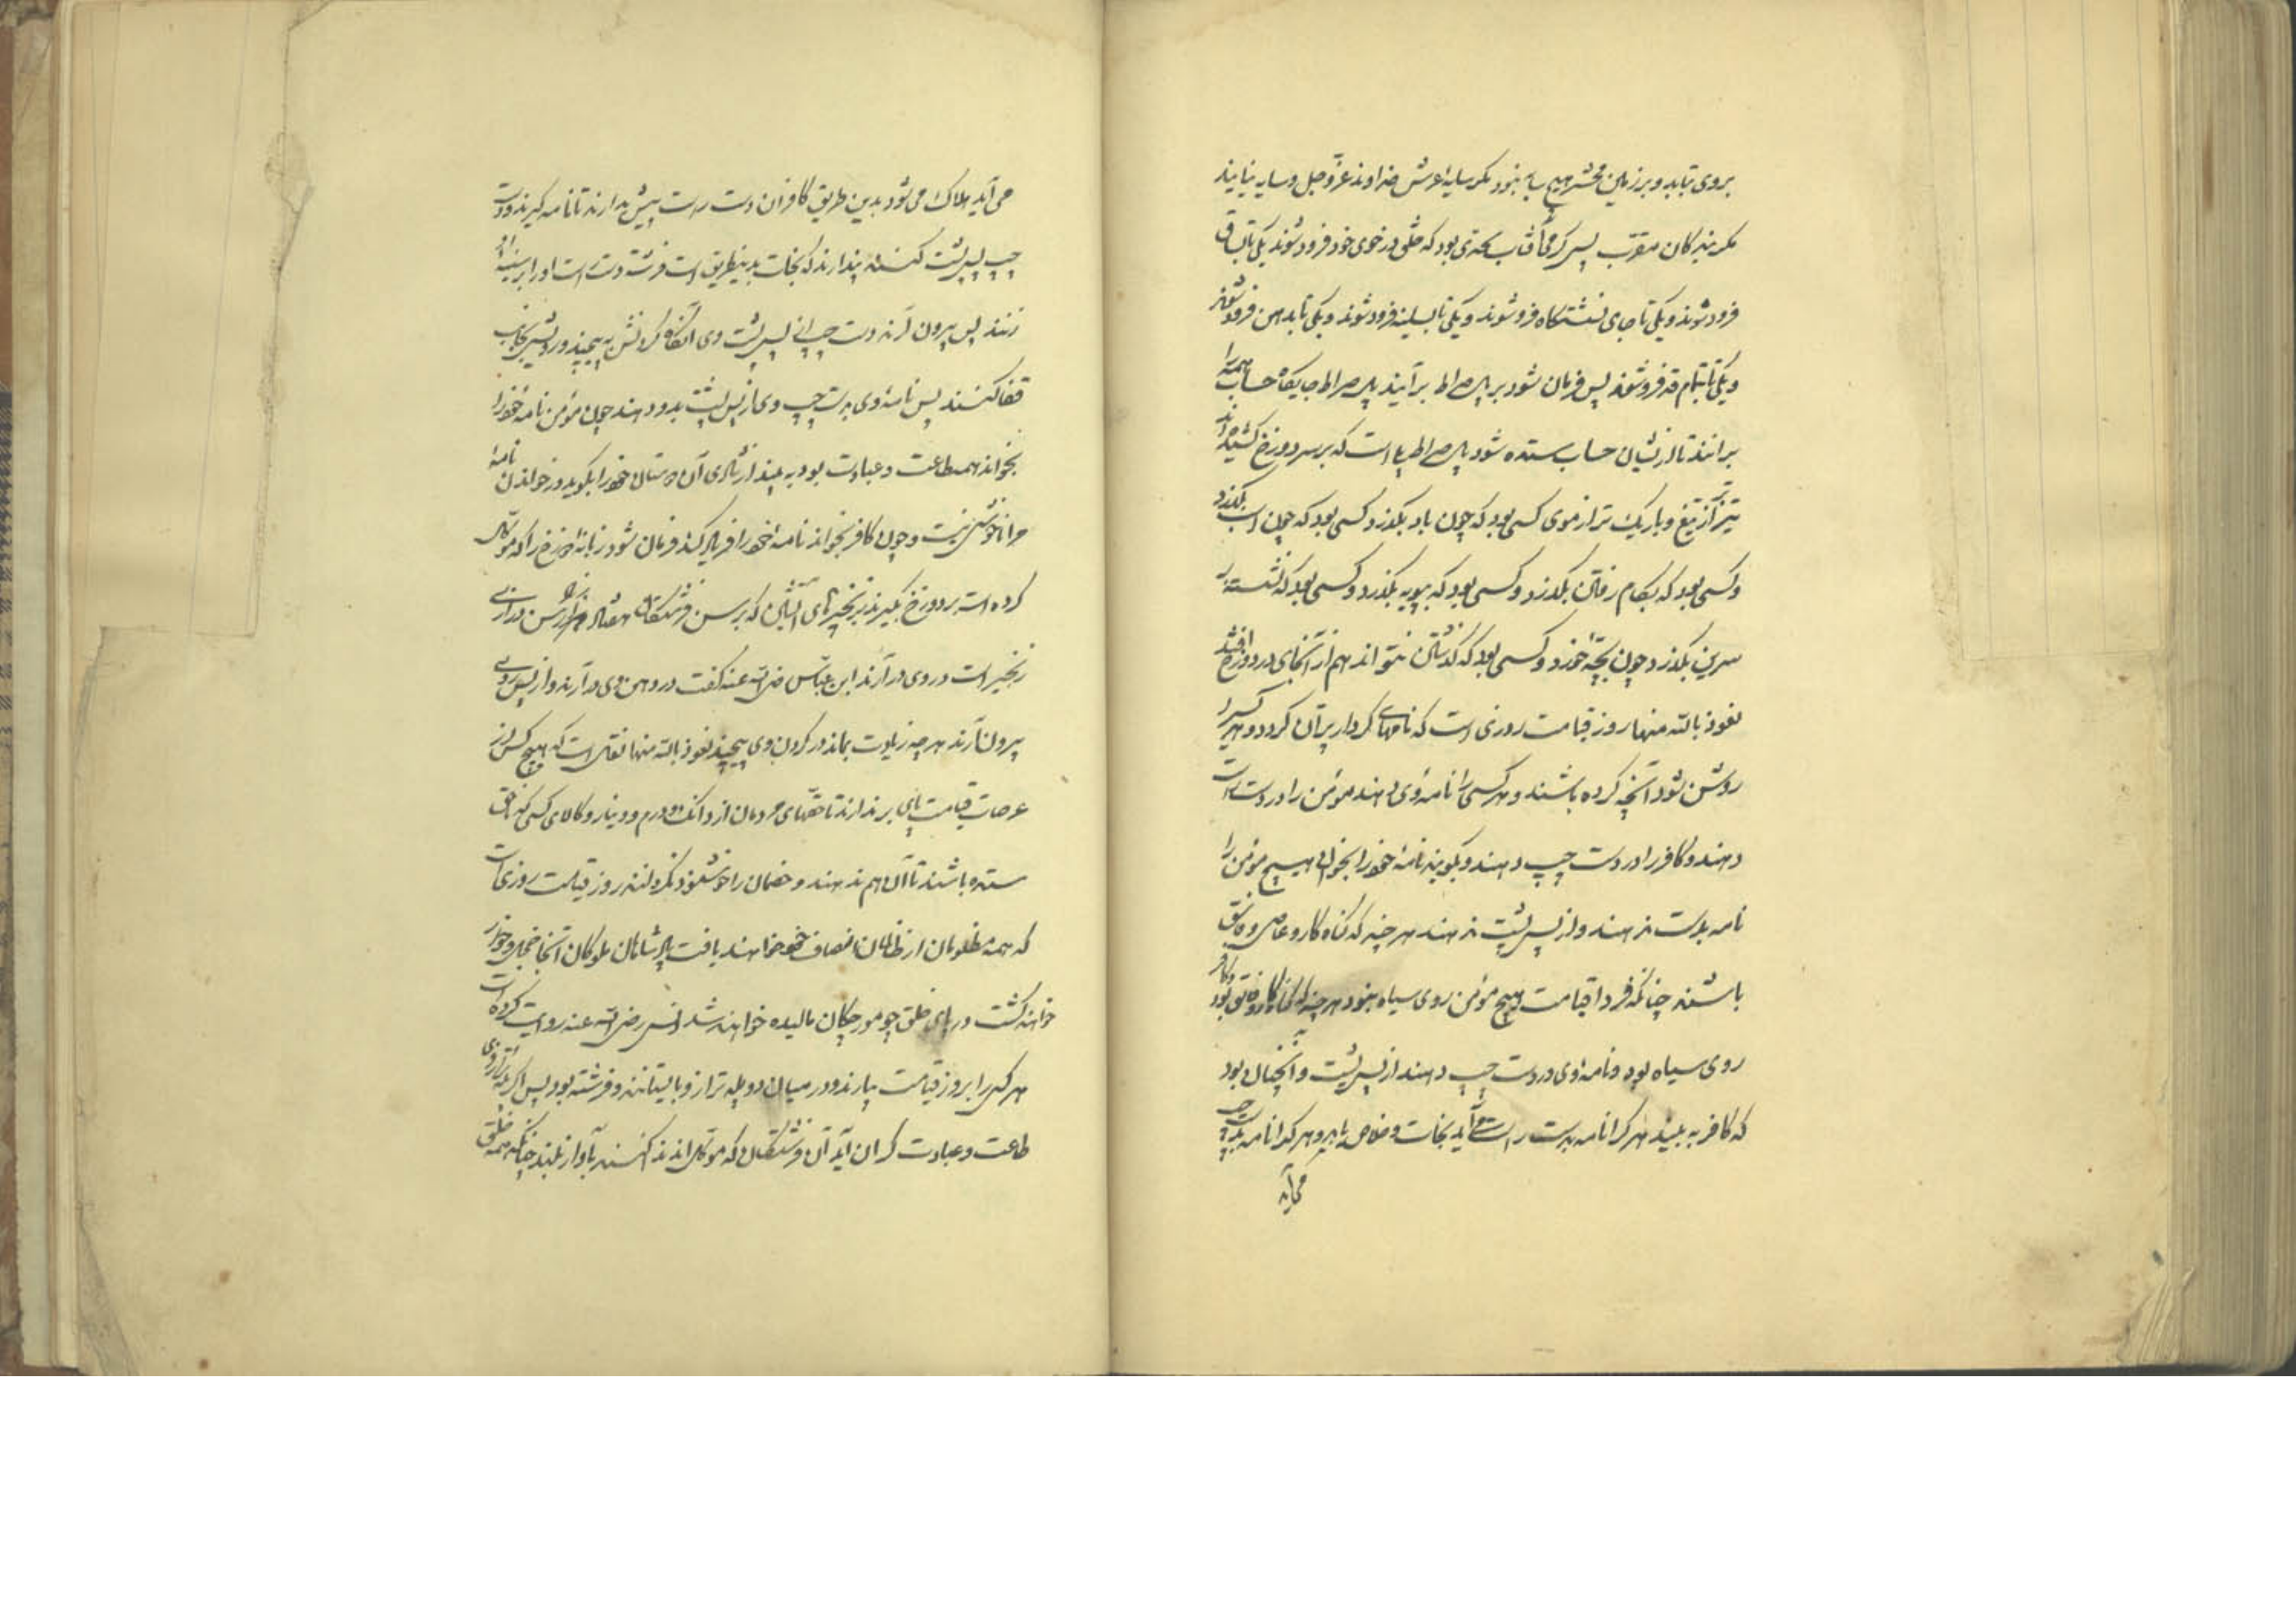 بروی تابد و بر زمین محشر هیچ سایه نبود مکر سایه عرش خداوند عزّ و جل و سایه نیابند
مکر بندکان مقرب پس کرمی آفتاب بحدی بود که خلق در خوی خود فرود شوند یکی تا بساق
فرود شوند و یکی تا جای نشستگاه فرو شوند و یکی تا بسینه فرود شوند و یکی تا بدهن فرو شوند
و یکی تا بتمام قد فرو شوند پس فرمان شود بر پل صراط برآیند پل صراط جایکاه حساب همه را
برانند تا از یشان حساب ستده شود پل صراط پلی است که بر سر دوزخ کشیده‌اند
تیزتر از تیغ و باریک تر از موی کسی بود که چون باد بکذرد و کسی بود که چون اسب بکذرد
و کسی بود که بکام رفتن بکذرد و کسی بود که بپویه بکذرد و کسی بود که نشسته بر
سرین بکذرد چون بچه خورد و کسی بود که کذشتن نتواند هم از آنجای در دوزخ افتد
نعوذ بالله منها روز قیامت روزی است که نامهای کردار پرّان کردد و هر کسیرا
روشن شود آنچه کرده باشند و هر کسی را نامه وی دهند مؤمن را در دست راست
دهند و کافر را در دست چپ دهند و بکویند نامهٔ خود را بخوان هیچ مؤمن را
نامه بدست ندهند و از پس پشت ندهند هر چند که کناه کار و عاصی و فاسق
باشند چنانکه فردا قیامت هیچ مؤمن روی سیاه نبود هر چند که کناه کار و فاسق بود و کافر
روی سیاه بود و نامه وی در دست چپ دهند از پس پشت و آنچنان بود
که کافر به بیند هر کرا نامه بدست راست می آید نجات و خلاص یابد و هر کرا نامه بدست چپ
می آید
می آید هلاک می شود بدین طریق کافران دست راست پیش بدارند تا نامه کیرند و دست
چپ پس پشت کنند پندارند که نجات بدینطریق است فرشته دست راست او را بر سینه او
زنند پس بیرون آرند دست چپ از پس پشت وی آنکاه کردنش به پیچند و رویش بجانب
قفا کنند پس نامه وی بدست چپ وی از پس پشت بدو دهند چون مؤمن نامه خود را
بخواند همه طاعت و عبادت بود به بیند از شادی آن دوستان خود را بکوید در خواندن نامهٔ
مرا ناخوشی نیست و چون کافر بخواند نامه خود را فریاد کند فرمان شود زبانه دوزخ را که موکّل
کرده است بر دوزخ بکیرند بزنجیرهای آتشین که برسن فرشتکان هفتاد هزار رسن درازی
زنجیر است در وی درآرند ابن عبّاس رضی الله عنه کفت در دهن وی درآرند و از پس وی
بیرون آرند هر چه زیادت بماند در کردن وی پیچند نعوذ بالله منها نقل است که هیچ کس از
عرصات قیامت پای برندارند تا حقّهای مردمان از دانک و درم و دینار و کالای کسی که ناحق
ستده باشند تا آن هم ندهند و خصمان را خوشنود نکردانند روز قیامت روزی است
که همه مظلومان از ظالمان انصاف خود خواهند یافت پادشاهان ملوکان آنجا خجل و خوار
خواهند کشت در پای خلق چو مورچکان مالیده خواهند شد انس رضی الله عنه روایت کرده است
هر که را بروز قیامت بیارند و در میان دو پله ترازو بایستانند و فرشته بود پس اکر پله ترازوی
طاعت و عبادت کران آید آن فرشتکان که موکل اند ندا کنند بآواز بلند چنانکه همه خلق